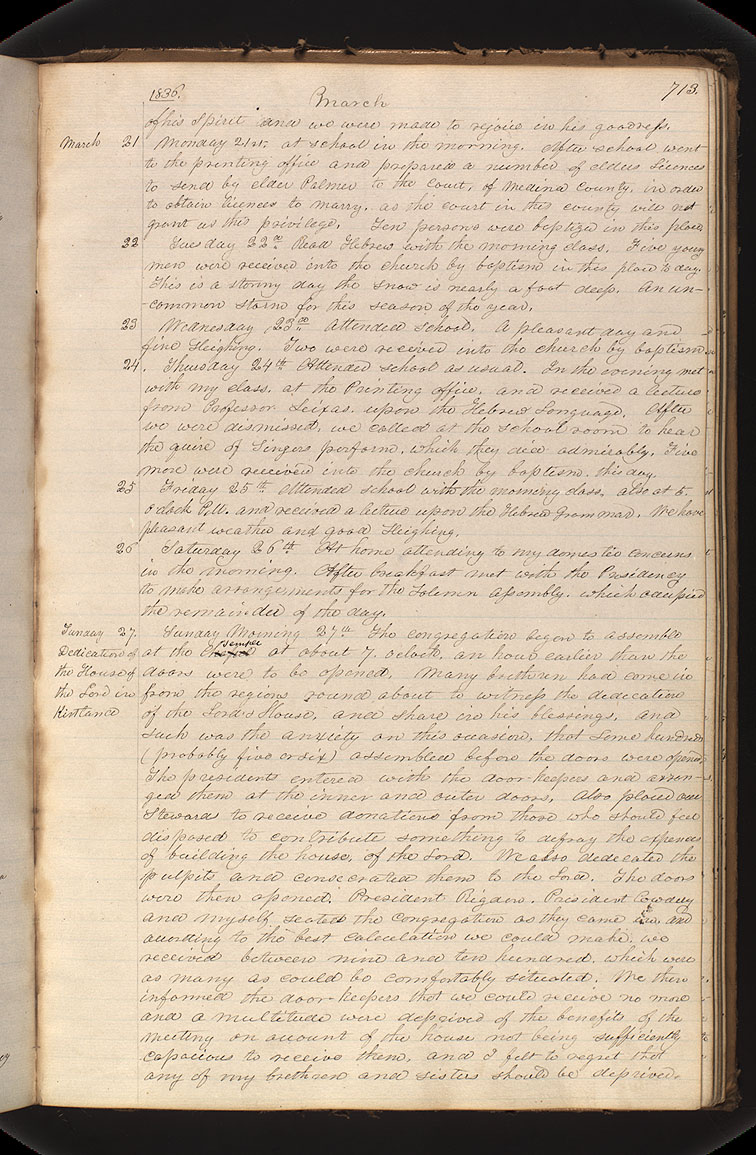 1836. March 713.
of his Spirit and we were made to rejoice in his goodness.
March 21 Monday 21st at school in the morning. After school went
to the printing office and prepared a number of elders Licences
to send by elder Palmer to the Court, of Medina County, in order
to obtain licences to marry, as the court in this county will not
grant us this privilege. Ten persons were baptized in this place
22 Tuesday 22nd Read Hebrew with the morning class. Five young
men were received into the church by baptism in this place to day.
This is a stormy day the snow is nearly a foot deep. An un-
-common storm for this season of the year.
23 Wednesday 23rd Attended School. A pleasant day and
fine Sleighing. Two were received into the church by baptism
24. Thursday 24th Attended school as usual. In the evening met
with my class, at the Printing office, and received a lecture
from Professor Seixas, upon the Hebrew Language. After
we were dismissed, we called at the school room to hear
the quire of Singers perform, which they did admirably. Five
more were received into the church by baptism, this day.
25 Friday 25th Attended school with the morning class, also at 5.
o clock P.M. and received a lecture upon the Hebrew Grammar. We have
pleasant weather and good Sleighing.
26 Saturday 26th At home attending to my domestic concerns
in the morning. After breakfast met with the Presidency
to make arrangements for the Solemn Assembly, which occupied
the remainder of the day.
Sunday 27. Sunday Morning 27th The congregation began to assemble
Temple
Dedication of at the at about 7. oclock, an hour earlier than the
the House of doors were to be opened, Many brethren had come in
the Lord in from the regions round about to witness the dedication
Kirtland of the Lord's House, and share in his blessings, and
such was the anxiety on this occasion, that some hundreds
(probably five or six) assembled before the doors were opened
The presidents entered with the door-keepers and arran-
ged them at the inner and outer doors, Also placed our
Stewards to receive donations from those who should feel
disposed to contribute something to defray the expenses
of building the house, of the Lord. We also dedicated the
pulpits and consecrated them to the Lord. The doors
were then opened, President Rigdon, President Cowdery
and myself seated the Congregation as they came in, and
according to the best calculation we could make, we
received between nine and ten hundred, which were
as many as could be comfortably situated. We then
informed the door-keepers that we could receive no more
and a multitude were deprived of the benefits of the
meeting on account of the house not being sufficiently
capacious to receive them, and I felt to regret that
any of my brethren and sisters should be deprived.